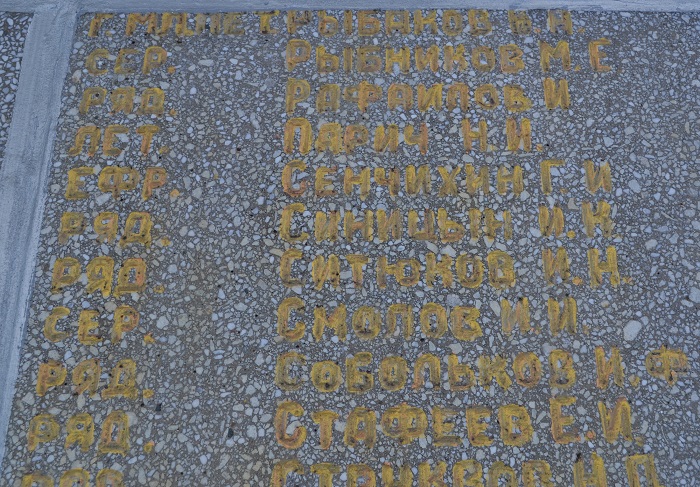 РЫБАКОВ И.Н.
СЕР. РЫБНИКОВ М.Е
РЯД. РАФАИЛОВ И
ЛЕТ. ПАРИЧ Н.И.
ЕФР. СЕНЧИХИН Г.И
РЯД. СИНИЦЫН И.К
РЯД. СИТЮКОВ И.Н.
СЕР. СМОЛОВ И.И.
РЯД. СОБОЛЬКОВ И.Ф
РЯД. СТАФЕЕВ Е.И.
РЯД.